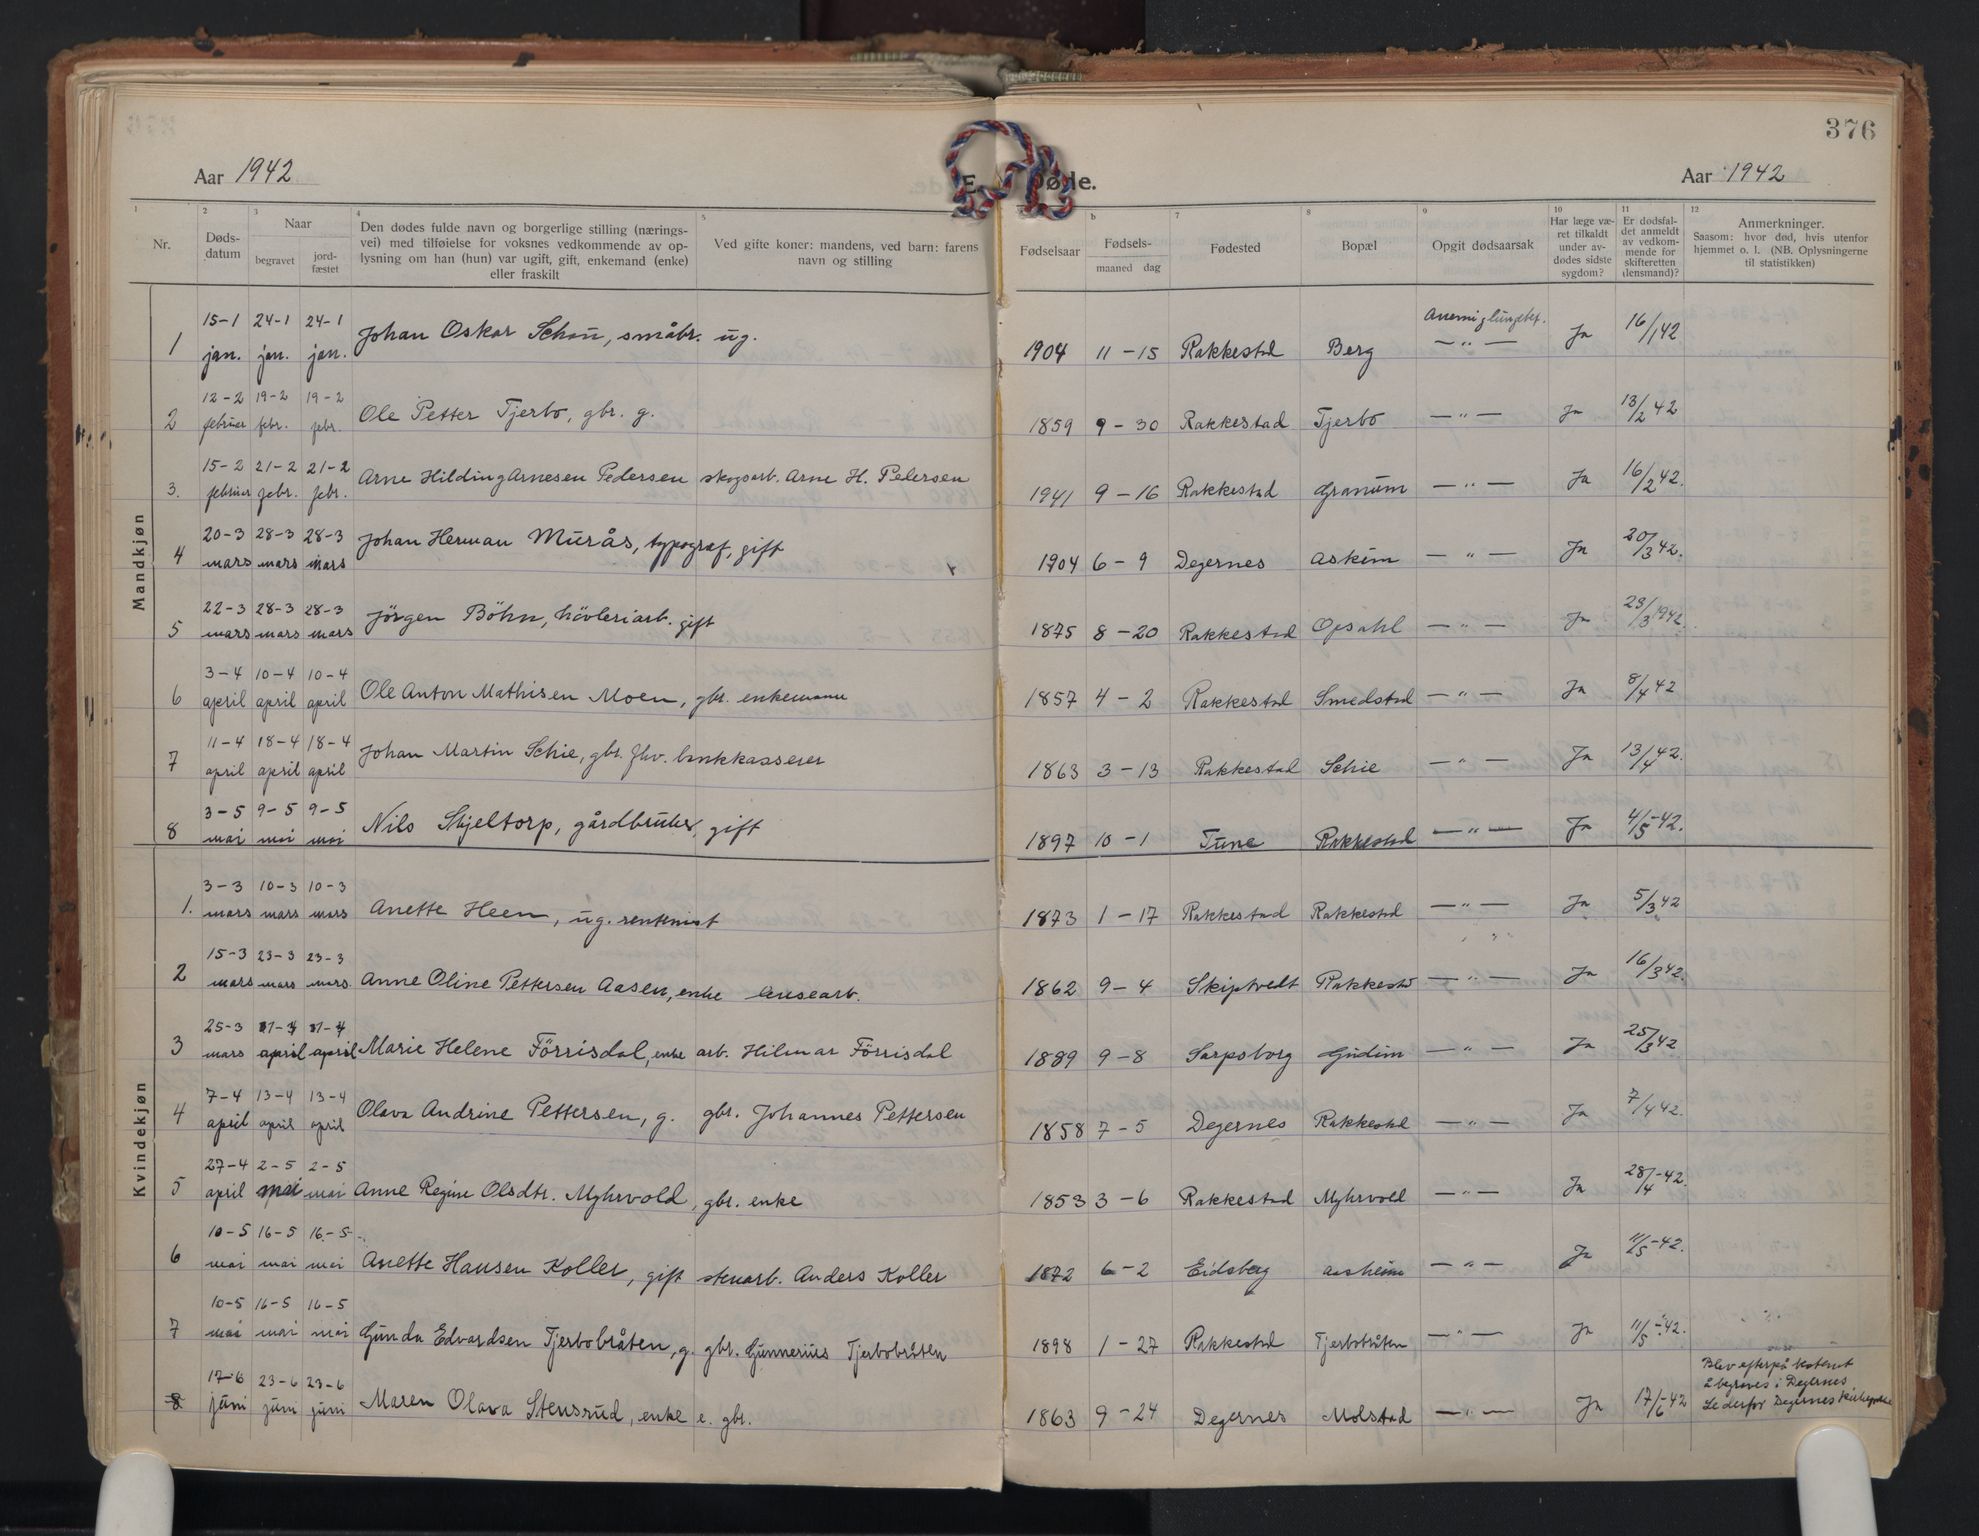 376
Aar 1942
E. Døde.
Aar 1942
1 2 3 4 5 b 7 8 9 10 11 12
Nr.
Døds-
datum
Naar
begravet
jord-
fæstet
Den dødes fulde navn og borgerlige stilling (nærings-
vei) med tilføielse for voksnes vedkommende av op-
lysning om han (hun) var ugift, gift, enkemand (enke)
eller fraskilt
Ved gifte koner: mandens, ved barn: farens
navn og stilling
Fødselsaar
Fødsels-
maaned dag
Fødested
Bopæl
Opgit dødsaarsak
Har læge væ-
ret tilkaldt
under av-
dødes sidste
sygdom?
Er dødsfal-
det anmeldt
av vedkom-
mende for
skifteretten
(lensmand)?
Anmerkninger.
Saasom: hvor død, hvis utenfor
hjemmet o. l. (NB. Oplysningerne
til statistikken)
Mandkjøn
15-1 24-1 24-1
1 jan. jan. jan. Johan Oskar Schou, småbr. ug. 1904 11-15 Rakkestad Berg — " — Ja 16/1 42
12-2 19-2 19-2
2 februar febr. febr. Ole Petter Tjerbo, gbr. g. 1859 9-30 Rakkestad Tjerbo — " — Ja 13/2 42
15-2 21-2 21-2
3. februar febr. febr. Arne Hilding Arnesen Pedersen skogsarb. Arne H. Pedersen 1941 9-16 Rakkestad Granum — " — Ja 16/2 42.
20-3 28-3 28-3
4 mars mars mars Johan Herman Murås, typograf, gift 1904 6-9 Degernes Askim — " — Ja 20/3 42.
22-3 28-3 28-3
5 mars mars mars Jörgen Böhn, hövleriarb. gift 1875 8-20 Rakkestad Opsahl — " — Ja 23/3 1942.
3-4 10-4 10-4
6 april april april Ole Anton Mathisen Moen, gbr. enkemann 1857 4-2 Rakkestad Smedstad — " — Ja 8/4 42
11-4 18-4 18-4
7 april april april Johan Martin Schie, gbr. fhv. bankkasserer 1863 3-13 Rakkestad Schie — " — Ja 13/4 42.
3-5 9-5 9-5
8 mai mai mai Nils Skjeltorp, gårdbruker, gift 1897 10-1 Tune Rakkestad — " — Ja 4/5-42.
Kvindekjøn
3-3 10-3 10-3
1. mars mars mars Anette Heen, ug. rentenist 1873 1-17 Rakkestad Rakkestad — " — Ja 5/3 42
15-3 23-3 23-3
2 mars mars mars Anne Oline Pettersen Aasen, enke 1862 9-4 Skiptvedt Rakkestad — " — Ja 16/3 42.
25-3 1-4 1-4
3 mars april april Marie Helene Förrisdal, enke arb. Hilmar Förrisdal 1889 9-8 Sarpsborg Gudim — " — Ja 25/3 42
7-4 13-4 13-4
4 april april april Olava Andrine Pettersen, g. gbr. Johannes Pettersen 1858 7-5 Degernes Rakkestad — " — Ja 7/4 42.
27-4 2-5 2-5
5 april mai mai Anne Regine Olsdtr. Myhrvold, gbr. enke 1853 3-6 Rakkestad Myhrvold — " — Ja 28/4-42.
10-5 16-5 16-5
6 mai mai mai Anette Hansen Koller, gift stenarb. Anders Koller 1872 6-2 Eidsberg Aasheim — " — Ja 11/5-42.
10-5 16-5 16-5
7 mai mai mai Gunda Edvardsen Tjerbobråten, g. gbr. Gunnerius Tjerbobråten 1898 1-27 Rakkestad Tjerbobråten — " — Ja 11/5-42.
17-6 23-6 23-6
8 juni juni juni Maren Olava Stensrud, enke e. gbr. 1863 9-24 Degernes Molstad — " — Ja 17/6-42
Blev efterpå bestemt
å begraves i Degernes
Se derfor Degernes